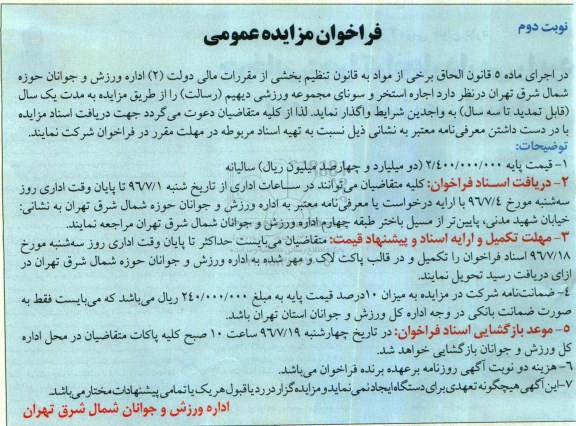 نوبت دوم
فراخوان مزایده عمومی
در اجرای ماده ۵ قانون الحاق برخی از مواد به قانون تنظیم بخشی از مقررات مالی دولت (۲) اداره ورزش و جوانان حوزه
شمال شرق تهران درنظر دارد اجاره استخر و سونای مجموعه ورزشی دیهیم (رسالت) را از طریق مزایده به مدت یک سال
(قابل تمدید تا سه سال) به واجدین شرایط واگذار نماید. لذا از کلیه متقاضیان دعوت می‌گردد جهت دریافت اسناد مزایده
با در دست داشتن معرفی‌نامه معتبر به نشانی ذیل نسبت به تهیه اسناد مربوطه در مهلت مقرر در فراخوان شرکت نمایند.
توضیحات:
۱- قیمت پایه ۲/۴۰۰/۰۰۰/۰۰۰ (دو میلیارد و چهارصد میلیون ریال) سالیانه
۲- دریافت اسناد فراخوان: کلیه متقاضیان می‌توانند در ساعات اداری از تاریخ شنبه ۹۶/۷/۱ تا پایان وقت اداری روز
سه‌شنبه مورخ ۹۶/۷/۴ با ارایه درخواست یا معرفی‌نامه معتبر به اداره ورزش و جوانان حوزه شمال شرق تهران به نشانی:
خیابان شهید مدنی، پایین‌تر از مسیل باختر طبقه چهارم اداره ورزش و جوانان شمال شرق تهران مراجعه نمایند.
۳- مهلت تکمیل و ارایه اسناد و پیشنهاد قیمت: متقاضیان می‌بایست حداکثر تا پایان وقت اداری روز سه‌شنبه مورخ
۹۶/۷/۱۸ اسناد فراخوان را تکمیل و در قالب پاکت لاک و مهر شده به اداره ورزش و جوانان حوزه شمال شرق تهران در
ازای دریافت رسید تحویل نمایند.
۴- ضمانت‌نامه شرکت در مزایده به میزان ۱۰درصد قیمت پایه به مبلغ ۲۴۰/۰۰۰/۰۰۰ ریال می‌باشد که می‌بایست فقط به
صورت ضمانت بانکی در وجه اداره کل ورزش و جوانان استان تهران باشد.
۵- موعد بازگشایی اسناد فراخوان: در تاریخ چهارشنبه ۹۶/۷/۱۹ ساعت ۱۰ صبح کلیه پاکات متقاضیان در محل اداره
کل ورزش و جوانان بازگشایی خواهد شد.
۶- هزینه دو نوبت آگهی روزنامه برعهده برنده فراخوان می‌باشد.
۷- این آگهی هیچگونه تعهدی برای دستگاه ایجاد نمی‌نماید و مزایده گزار در رد یا قبول هر یک یا تمامی پیشنهادات مختار می‌باشد.
اداره ورزش و جوانان شمال شرق تهران